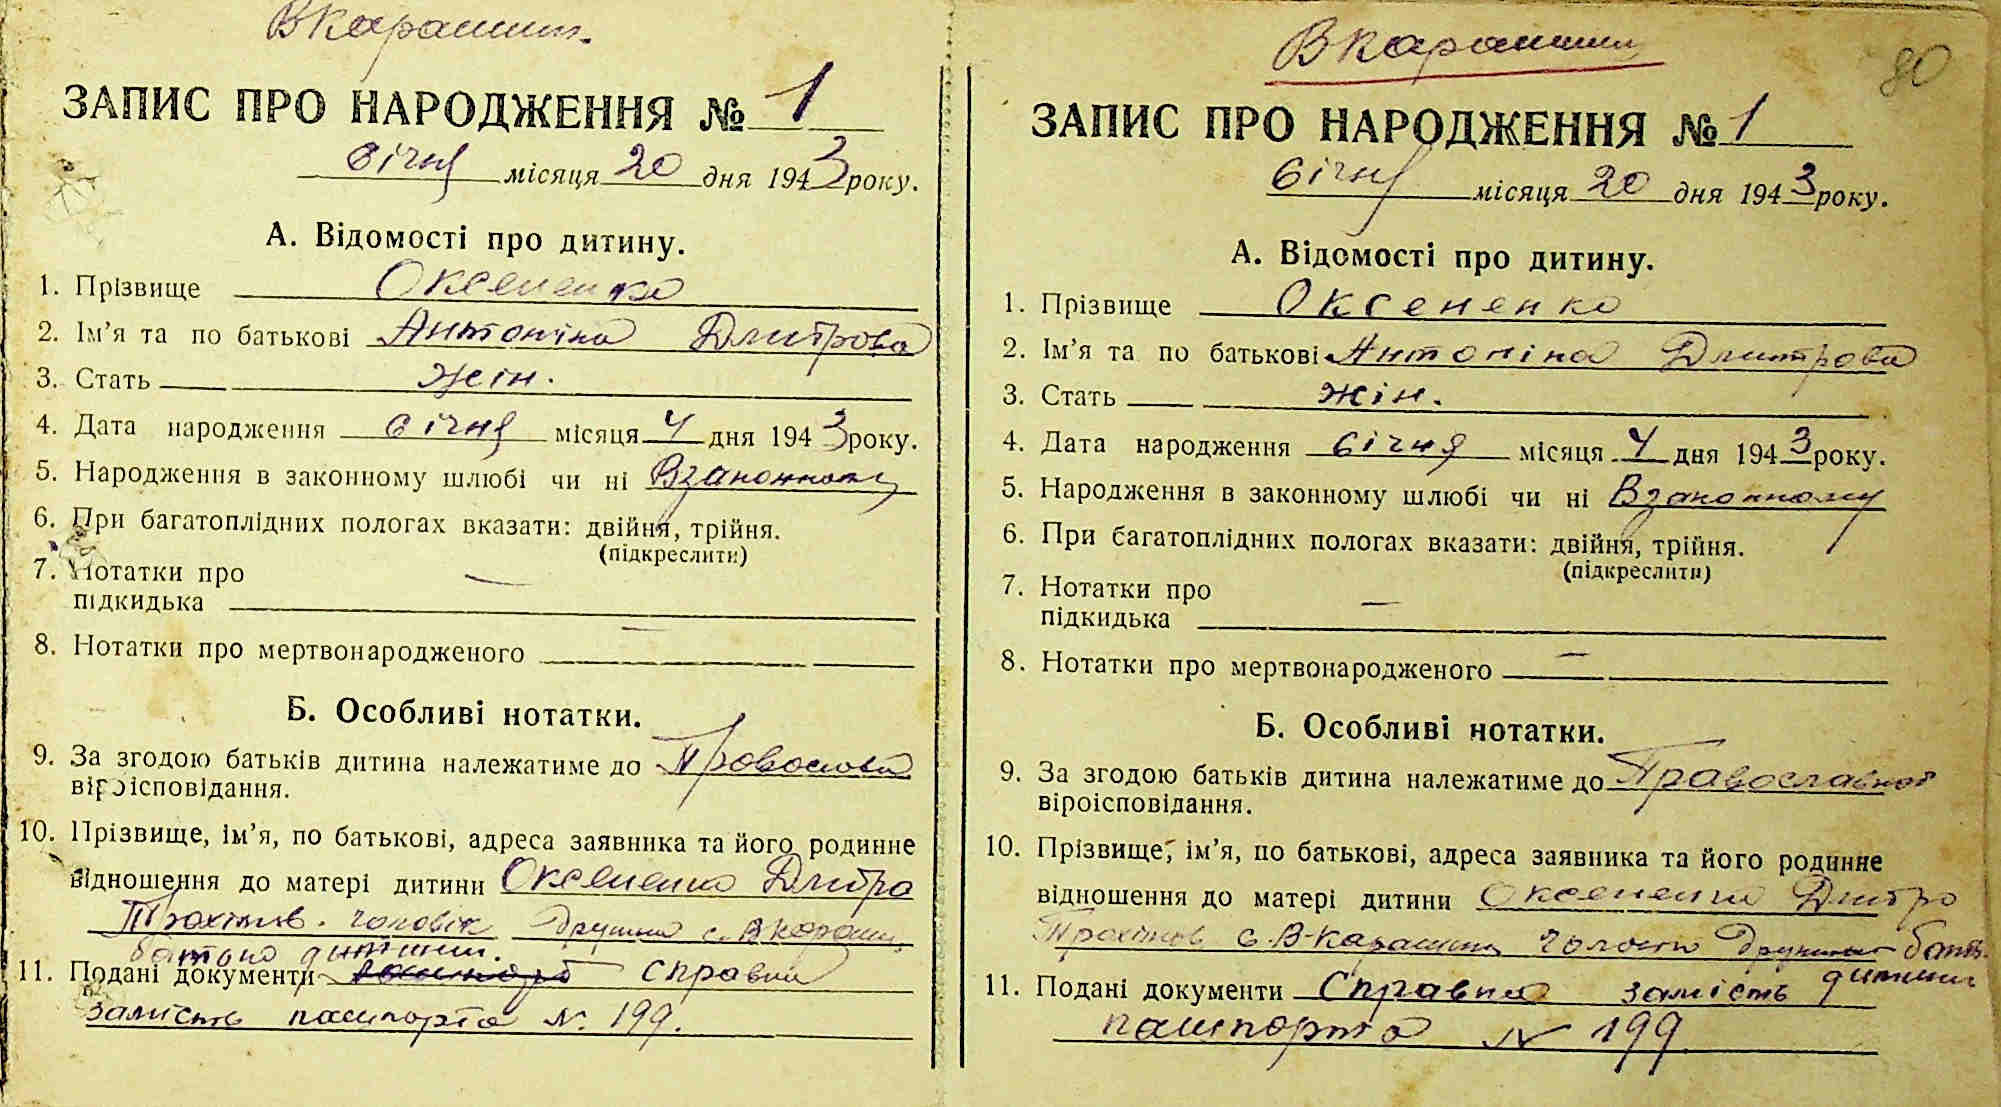 В Карашин.
ЗАПИС ПРО НАРОДЖЕННЯ № 1
січня місяця 20 дня 1943 року.
А. Відомості про дитину.
1. Прізвище Оксененко
2. Ім’я та по батькові Антоніна Дмитрова
3. Стать жін.
4. Дата народження січня місяця 4 дня 1943 року.
5. Народження в законному шлюбі чи ні В законному
6. При багатоплідних пологах вказати: двійня, трійня.
(підкреслити)
7. Нотатки про —
підкидька
8. Нотатки про мертвонародженого —
Б. Особливі нотатки.
9. За згодою батьків дитина належатиме до Провослова
віроісповідання.
10. Прізвище, ім’я, по батькові, адреса заявника та його родинне
відношення до матері дитини Оксененко Дмитро
Трохимов. чоловік дружина с. В Карашин.
батько дитини.
11. Подані документи справка
замість пашпорта N. 199.
В Карашин
80
ЗАПИС ПРО НАРОДЖЕННЯ № 1
січня місяця 20 дня 1943 року.
А. Відомості про дитину.
1. Прізвище Оксененко
2. Ім’я та по батькові Антоніна Дмитрова
3. Стать жін.
4. Дата народження січня місяця 4 дня 1943 року.
5. Народження в законному шлюбі чи ні В законному
6. При багатоплідних пологах вказати: двійня, трійня.
(підкреслити)
7. Нотатки про —
підкидька
8. Нотатки про мертвонародженого —
Б. Особливі нотатки.
9. За згодою батьків дитина належатиме до Православної
віроісповідання.
10. Прізвище, ім’я, по батькові, адреса заявника та його родинне
відношення до матері дитини Оксененко Дмитро
Трохимов с. В-Карашин дружини бать.
дитини
11. Подані документи Справка замість
пашпорта N 199